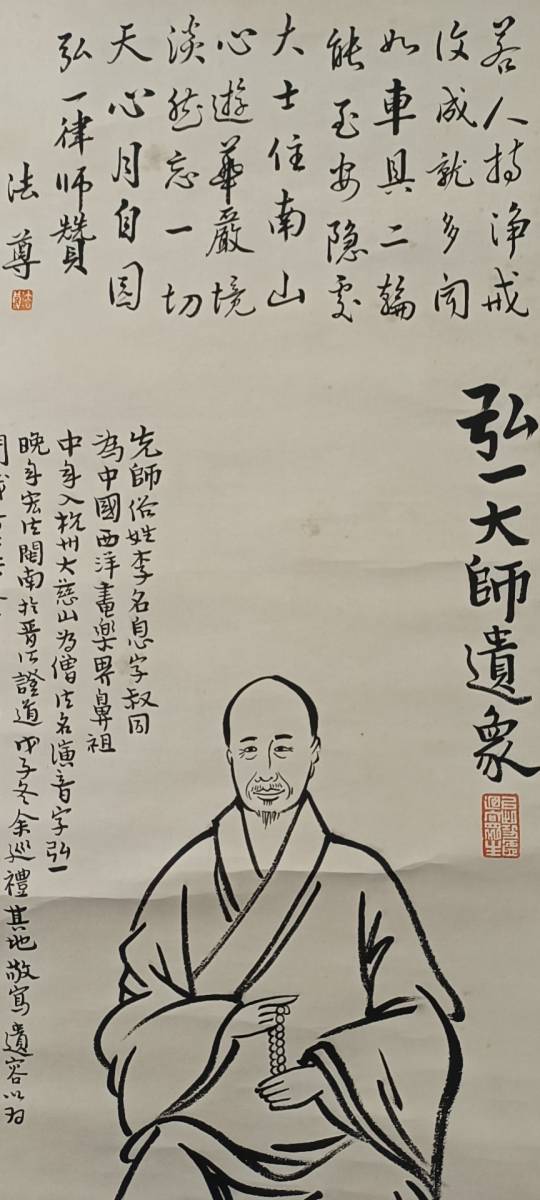 若人持淨戒
復成就多闻
如車具二輪
能至安隐處
大士住南山
心遊華嚴境
淡然忘一切
天心月自圆
弘一律師贊
法尊
弘一大師遺象
先師俗姓李名息字叔同
為中國西洋畫樂界鼻祖
中年入杭州大慈山为僧法名演音字弘一
晚年宏法閩南於晋江證道 甲子冬余巡禮其地敬寫遺容以为